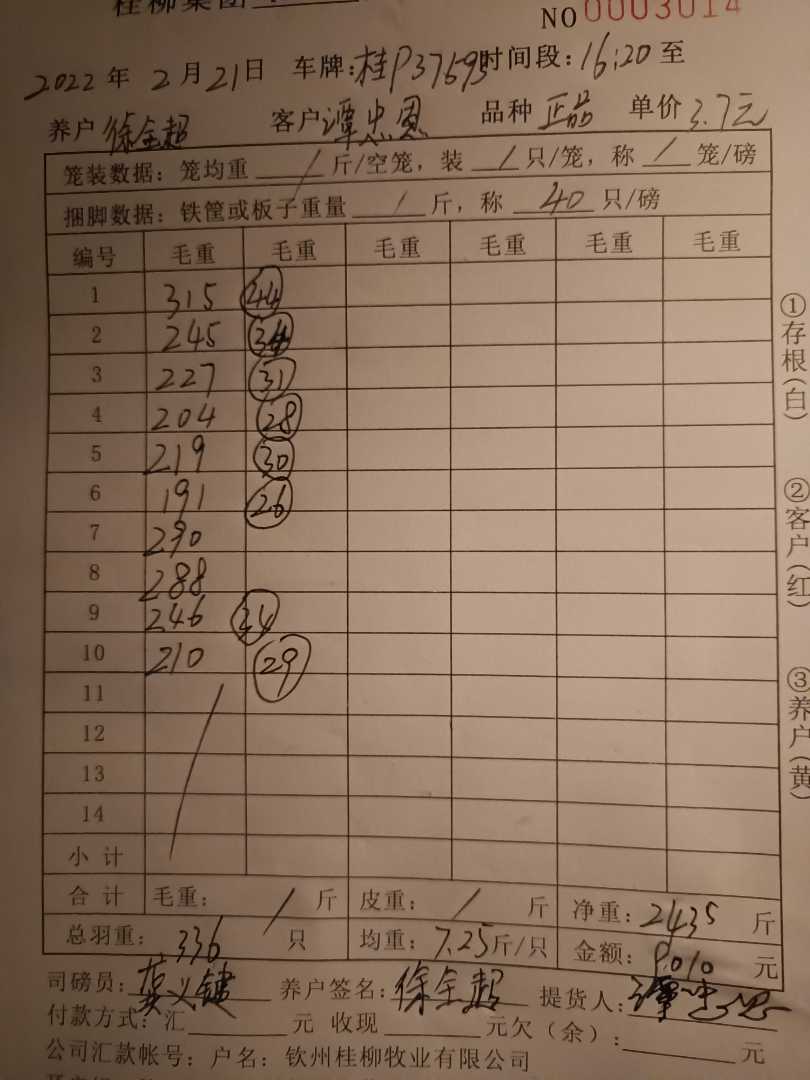 桂柳集团
NO 0003014
2022 年 2 月 21 日 车牌:桂P37695 时间段:16:20 至
养户 徐全超 客户 谭忠恩 品种 正品 单价 3.7元
笼装数据:笼均重 / 斤/空笼,装 / 只/笼,称 / 笼/磅
捆脚数据:铁筐或板子重量 / 斤,称 40 只/磅
编号 毛重 毛重 毛重 毛重 毛重 毛重
1 315 44
2 245 34
3 227 31
4 204 28
5 219 30
6 191 26
7 290
8 288
9 246 34
10 210 29
11
12
13
14
小计
合计 毛重: / 斤 皮重: / 斤 净重:2435 斤
总羽重: 336 只 均重:7.25斤/只 金额:9010 元
司磅员:莫义键 养户签名:徐全超 提货人:谭忠恩
付款方式:汇 元 收现 元欠(余): 元
公司汇款帐号:户名:钦州桂柳牧业有限公司
①存根(白)
②客户(红)
③养户(黄)